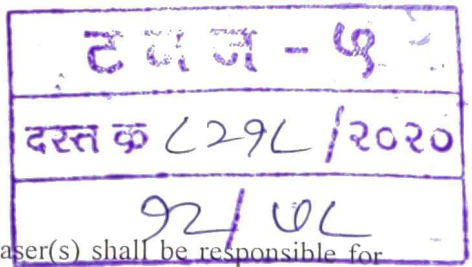 ट न न - ५
दस्त क्र ८२१८ /२०२०
१२/ ७८
aser(s) shall be responsible for